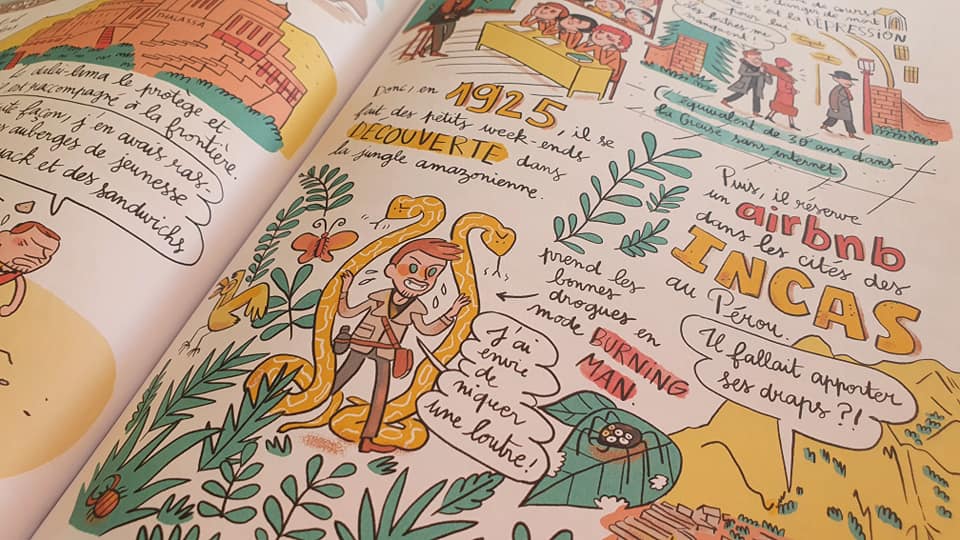 THALASSA
le dalaï-lama le protège et
raccompagné à la frontière.
façon, j'en avais ras-
auberges de jeunesse
et des sandwichs
Donc, en 1925, il se
fait des petits week-ends
DÉCOUVERTE dans
la jungle amazonienne.
prend les
bonnes
drogues en
mode BURNING
MAN.
J'ai
envie
de
niquer
une loutre!
de cours
dangers de mort
c'est la DÉPRESSION
pour lui
les lettres me
manquent!
L'équivalent de 30 ans dans
la Creuse sans internet
Puis, il réserve
un airbnb
dans les cités des
INCAS
au Pérou.
Il fallait apporter
ses draps ?!